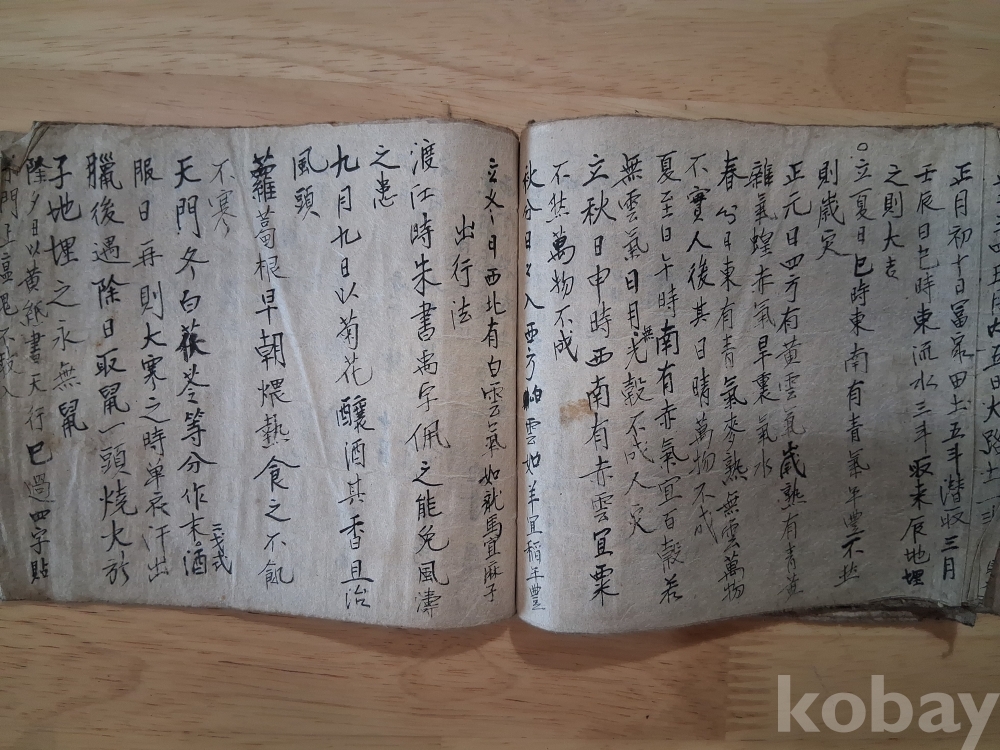 正月初十日冨家田土五斗潜收三月
壬辰日巳時東流水三斗取末辰地埋
之則大吉
○立夏日巳時東南有青氣年豊不然
則歲灾
正元日四方有黃雲氣歲熟有青黃
雜氣蝗赤氣旱裏氣水
春分日東有青氣麥熟無雲萬物
不實人後其日晴萬物不成
夏至日午時南有赤氣宜百穀若
無雲氣日月無光穀不成人灾
立秋日申時西南有赤雲宜粟
不然萬物不成
秋分日入西方白雲如羊宜稲年豊
立冬日西北有白雲氣如龍馬宜麻子
出行法
渡江時朱書禹字佩之能免風濤
之患
九月九日以菊花釀酒其香且治
風頭
蘿葍根早朝煨熱食之不飢
不寒
天門冬白茯苓等分作末酒
服日再則大寒之時單衣汗出
臘後遇除日取鼠一頭燒火於
子地埋之永無鼠
除夕日以黃紙書天行已過四字貼
kobay